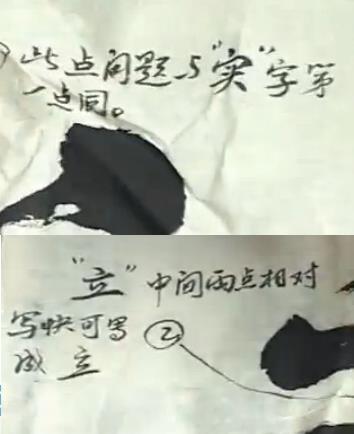 此点问题与“实”字第
一点同。
“立”中间两点相对
写快可写
②
成立